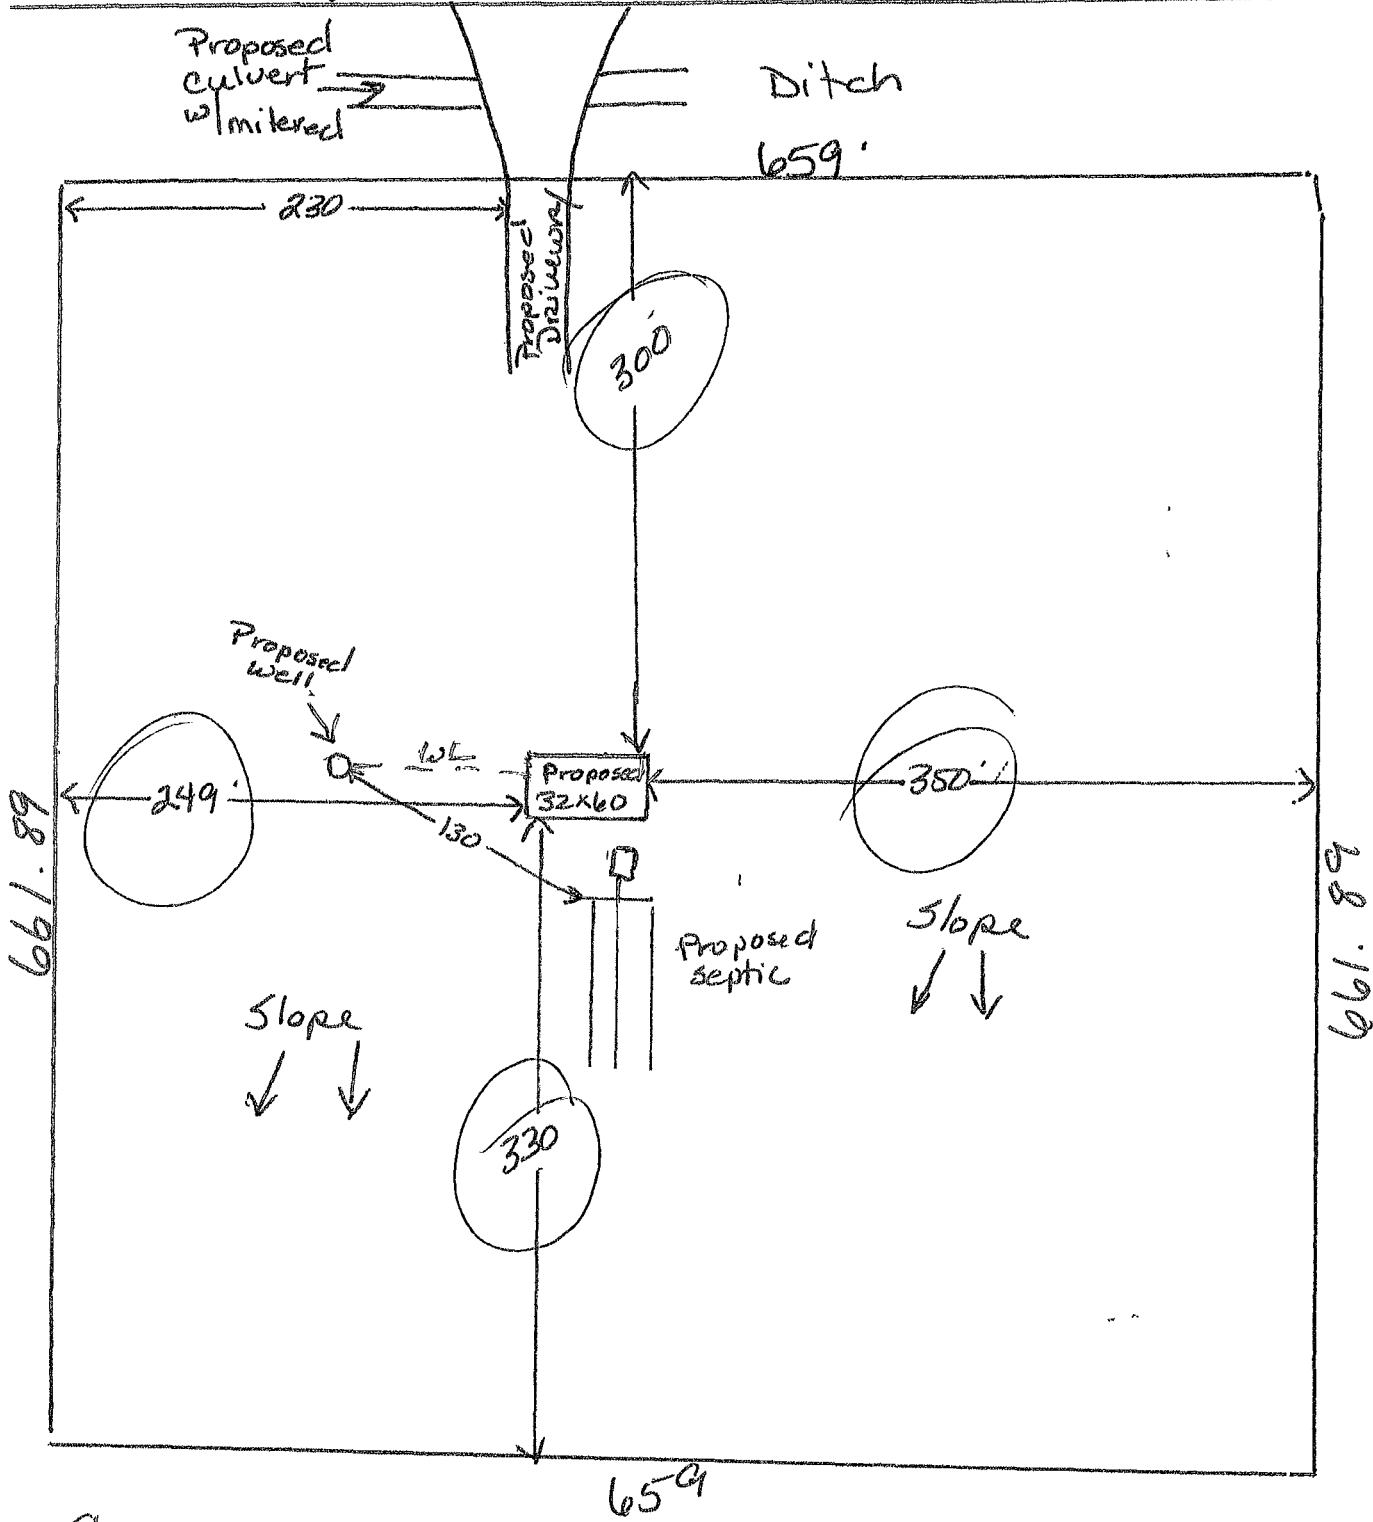 Proposed
culvert
w/mitered
Ditch
659'
230
Proposed
Driveway
300
Proposed
well
WL
Proposed
32x60
249'
350'
130
661.89
661.89
Proposed
septic
Slope
Slope
330
659